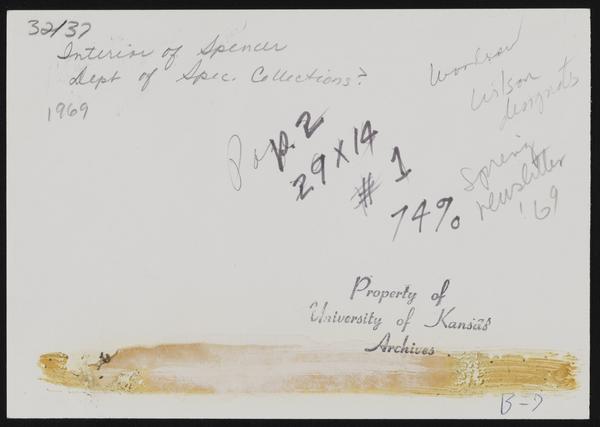 32/37
Interior of Spencer
Dept of Spec. Collections?
1969
Woodrow
Wilson +
designate
Spring
newsletter
'69
Pop. 2
29 x 14
# 1
74%
Property of
University of Kansas
Archives
B-7